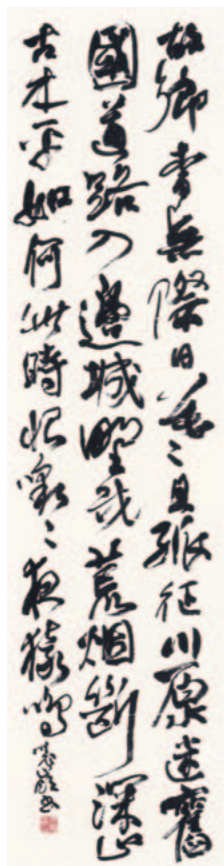 故鄉杳無際日暮且孤征川原迷舊
國道路入邊城野戍荒烟斷深山
古木平如何此時恨噭々夜猿鳴